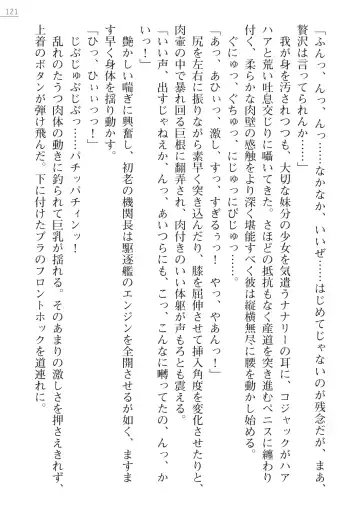 121
「ふんっ、んっ、んっ……なかなか、いいぜ……はじめてじゃないのが残念だが、まあ、
贅沢は言ってられんか……」
我が身を汚されつつも、大切な妹分の少女を気遣うナナリーの耳に、コジャックがハア
ハアと荒い吐息交じりに囁いてきた。さほどの抵抗もなく産道を突き進むペニスに纏わり
つく、柔らかな肉壁の感触をより深く堪能すべく彼は縦横無尽に腰を動かし始める。
ぐにゅっ、ぐちゅっ、にじゅっにぴじゅっ……。
「あっ、あひぃっ、激し、すっ、すぎるぅっ！　やっ、やあんっ！」
尻を左右に振りながら素早く突き込んだり、膝を屈伸させて挿入角度を変化させたりと、
肉壷の中で暴れ回る巨根に翻弄され、肉付きのいい体躯が声もろとも震える。
「いい声、出すじゃねえか、んっ、あいつらにも、こっ、こんなに囀ってたの、んっ、か
いっ！」
艶かしい喘ぎに興奮し、初老の機関長は駆逐艦のエンジンを全開させるが如く、ますま
す早く身体を揺り動かす。
「ひっ、ひぃぃっっ！」
じぷじゅぷじぷっ……パチッパチィンッ！
乱れのたうつ肉体の動きに釣られて巨乳が揺れる。そのあまりの激しさを押さえきれず、
上着のボタンが弾け飛んだ。下に付けたブラのフロントホックを道連れに。